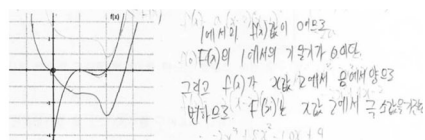 f(x)
1에서의 f(x)값이 0이므로
F(x)의 1에서의 기울기가 0이다.
그리고 f(x)가 x값 2에서 음에서 양으로
변하므로 F(x)는 x값 2에서 극소값을